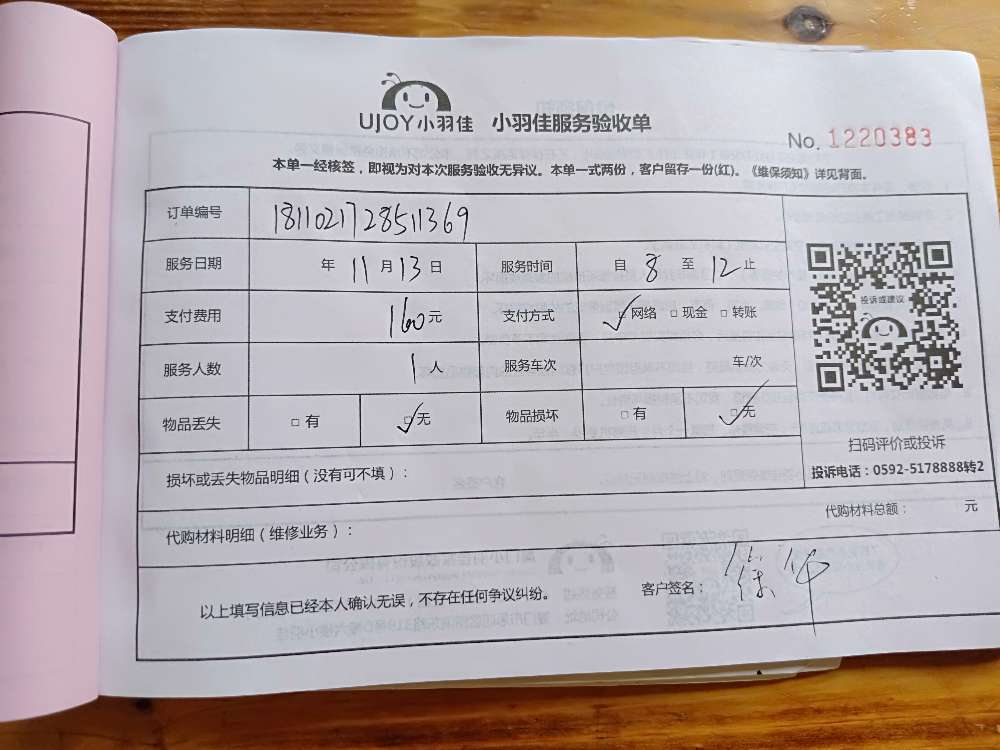 UJOY小羽佳 小羽佳服务验收单
No. 1220383
本单一经核签，即视为对本次服务验收无异议。本单一式两份，客户留存一份(红)。《维保须知》详见背面。
订单编号 1811021728511369
服务日期 年 11 月 13 日 服务时间 自 8 至 12 止
支付费用 160元 支付方式 ☑网络 □现金 □转账
服务人数 1 人 服务车次 车/次
物品丢失 □有 ☑无 物品损坏 □有 ☑无
投诉或建议
扫码评价或投诉
投诉电话：0592-5178888转2
损坏或丢失物品明细（没有可不填）：
代购材料明细（维修业务）： 代购材料总额： 元
以上填写信息已经本人确认无误，不存在任何争议纠纷。 客户签名：